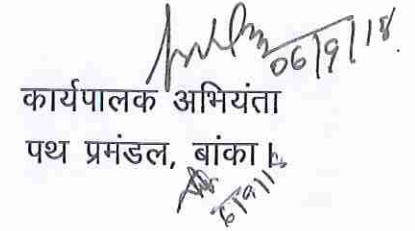 06/9/18
कार्यपालक अभियंता
पथ प्रमंडल, बांका।
6/9/18